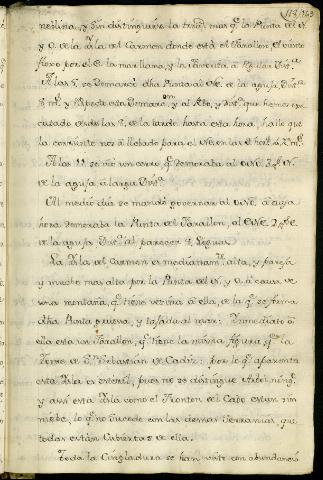 113, 763
neblina, y sin distinguirse la tierra mas q.e la Punta del N.
y O. de la Ysla del Carmen donde está el Farallon. El viento
floxo por el E. la marllana, y la
Alas 5. se Demarcó dha Punta al de la aguja, Dist.a
8 m.s y Respecto esta Demarc.n y al Rvo, y dist.a que hemos
cutado desde las 8. de la tarde hasta esta hora, hallo que
la corriente nos á llevado para el
Alas 11 se vió un cerro, q.e Demoraba al ONO.
de la aguja á larga Dist.a
Al medio dia se mandó governar al ONO, á cuya
hora demoraba la Punta del Farallon, al ESE 2 g.s E.
de la aguja Dist.a al parecer 7. Leguas.
La Ysla del Carmen es medianam.te alta, y pareja
y mucho mas alta por la Punta del N. y O. á causa de
una montaña, q.e tiene vecina á ella, de la q.e se forma
dha Punta gruesa, y tajada al mar: Ynmediato á
ella esta un Farallon, q.e tiene la misma figura, q.e la
Torre de S.n Sebastian de Cadiz: por lo q.e aparenta
esta Ysla es esteril, pues no se distingue Arbol ning.o
y assi esta Ysla como el Fronton del Cabo estan sin
nieve, lo q.e no sucede con las demas Serranias, que
todas están Cubiertas de ella.
Toda la Cingladura se han visto con abundancia